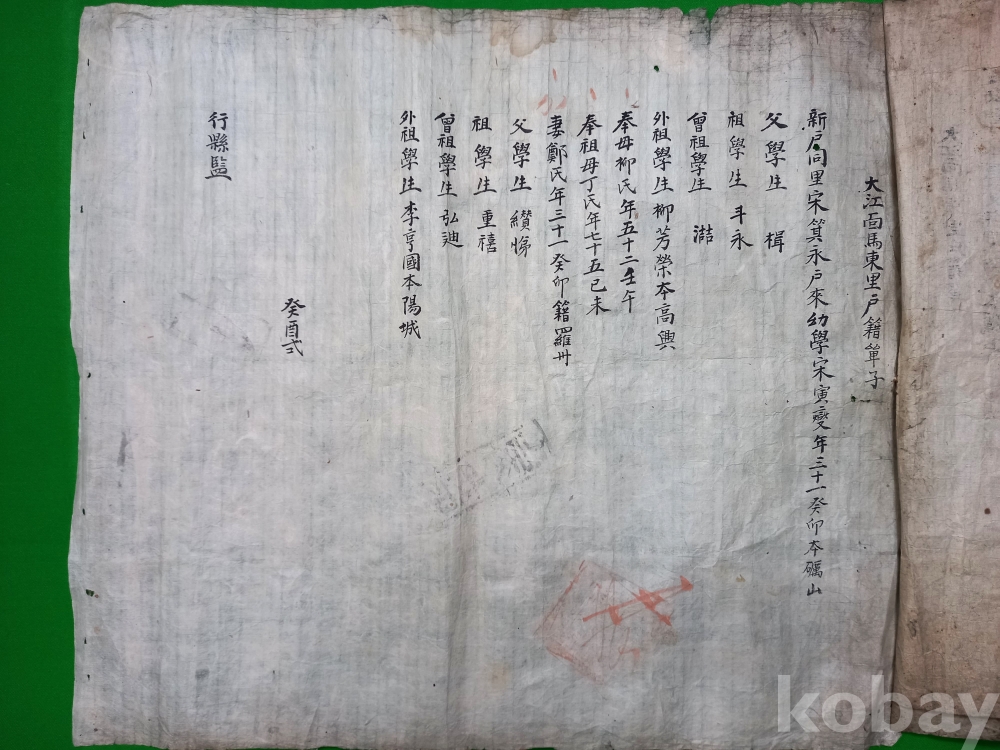 大江面馬東里戶籍單子
新戶同里宋箕永戶來幼學宋寅燮年三十一癸卯本礪山
父學生 楫
祖學生 斗永
曾祖學生 澔
外祖學生柳芳榮本高興
奉母柳氏年五十二壬午
奉祖母丁氏年七十五己未
妻鄭氏年三十一癸卯籍羅州
父學生 纘悌
祖學生 重禧
曾祖學生 弘迪
外祖學生李亨國本陽城
癸酉式
行縣監
kobay